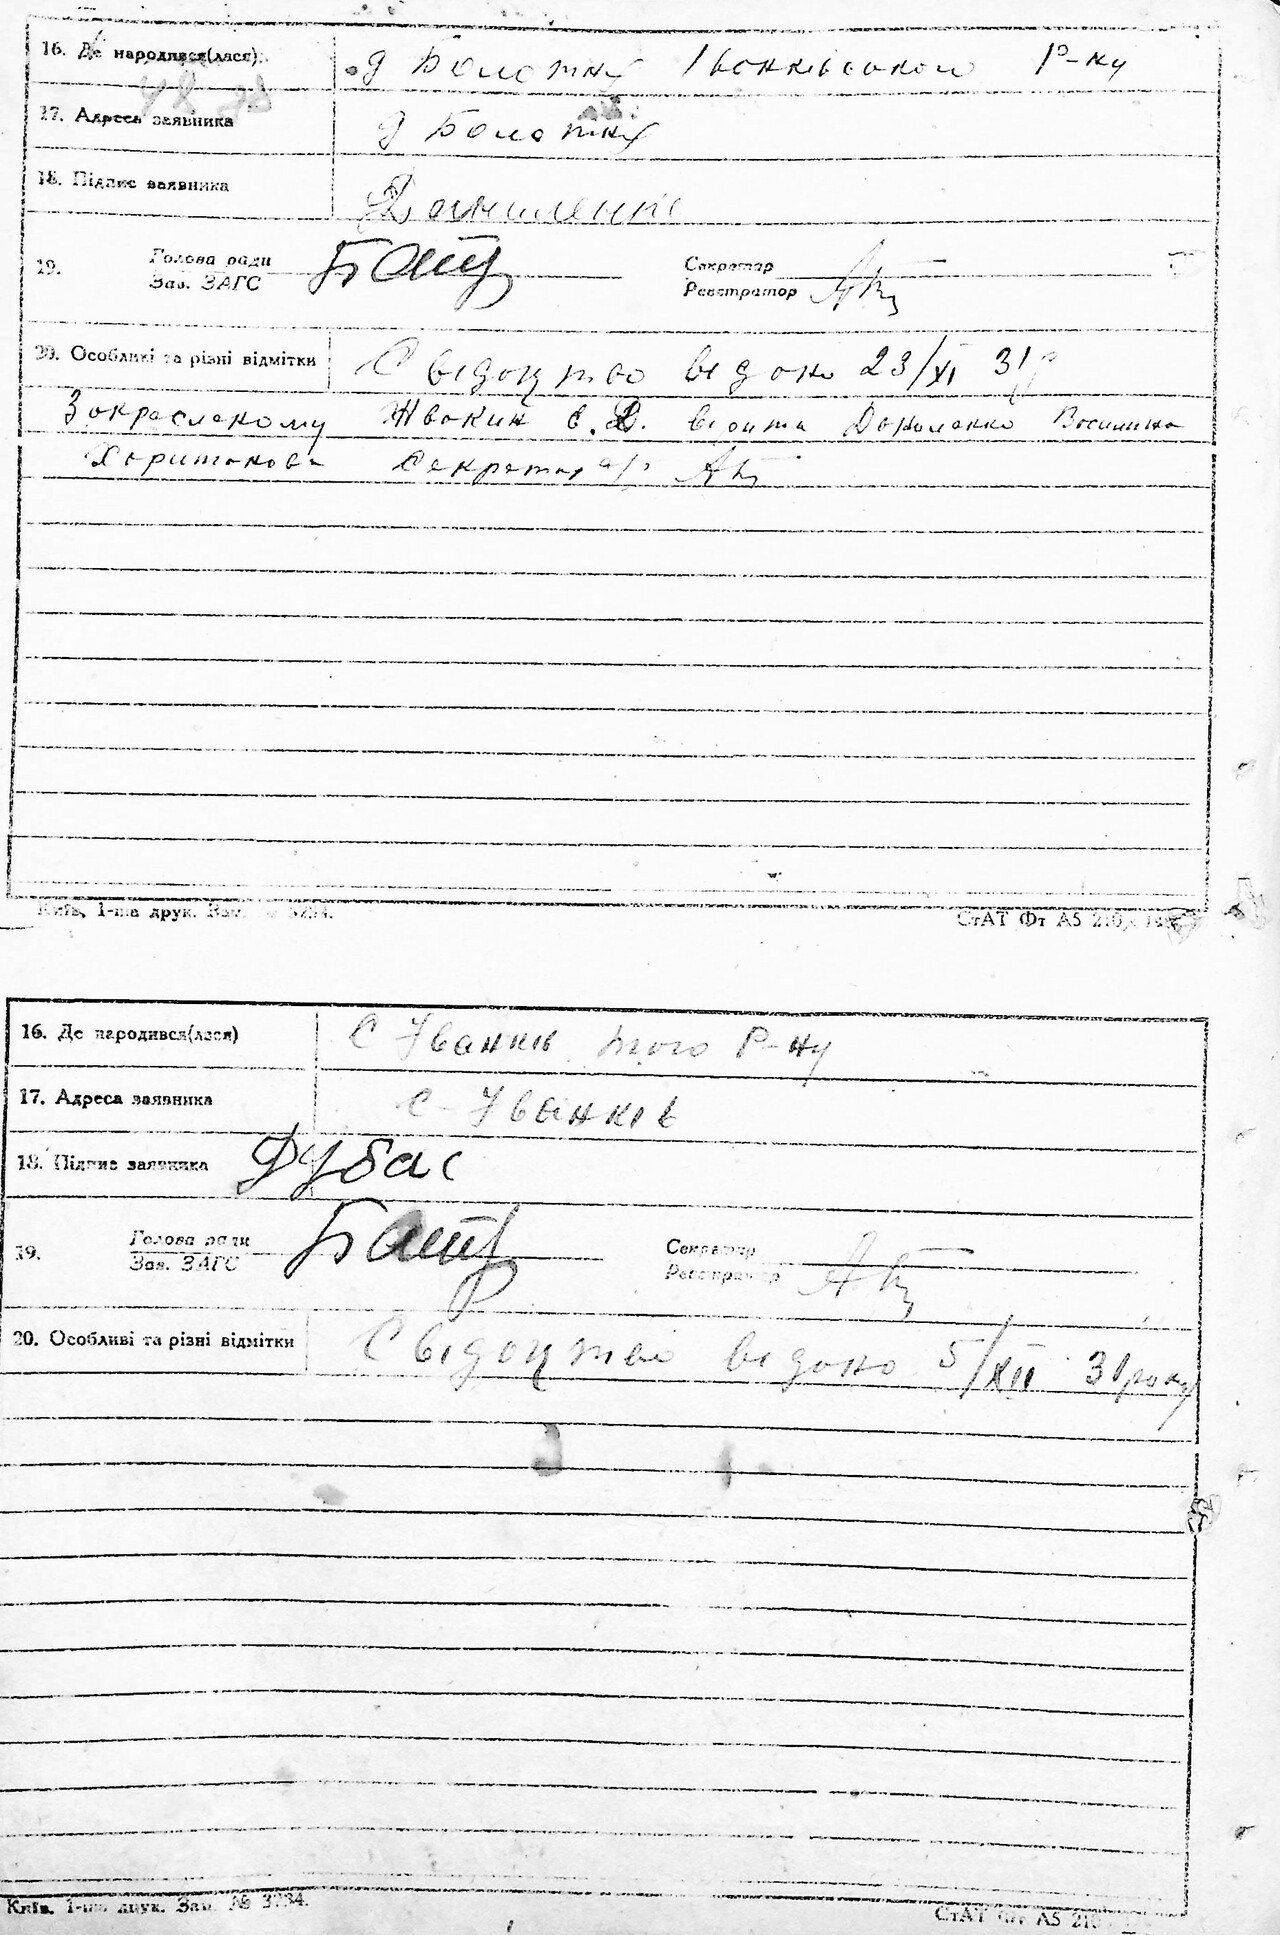 16. Де народився(лася) д Болотня Іванківського Р-ну
17. Адреса заявника д Болотня
18. Підпис заявника Даниленко
19. Голова ради
Зав. ЗАГС
Секретар
Реєстратор
20. Особливі та різні відмітки Свідоцтво відоно 23/XI 31р
Закресленому Жвакин Є.Д. вірити Даниленко
Харитонова Секретар с/р
Київ, 1-ша друк. Зам. № 3234.
СтАТ Фт А5 210
16. Де народився(лася) с Іванків того Р-ну
17. Адреса заявника с-Іванків
18. Підпис заявника Дубас
19. Голова ради
Зав. ЗАГС
Секретар
Реєстратор
20. Особливі та різні відмітки Свідоцтво відоно 5/XII 31 року
Київ, 1-ша друк. Зам. № 3234.
СтАТ Фт А5 210